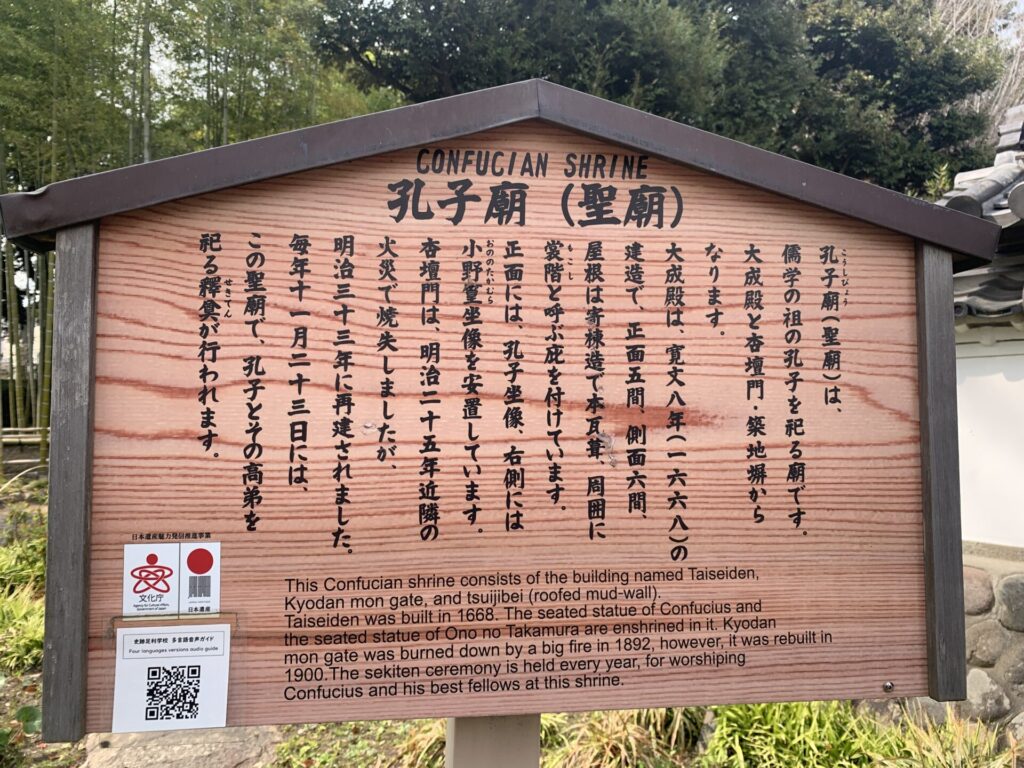 CONFUCIAN SHRINE
孔子廟（聖廟）
こうしびょう
孔子廟（聖廟）は、
儒学の祖の孔子を祀る廟です。
大成殿と杏壇門・築地塀から
なります。
大成殿は、寛文八年（一六六八）の
建造で、正面五間、側面六間、
屋根は寄棟造で本瓦葺、周囲に
もこし
裳階と呼ぶ庇を付けています。
正面には、孔子坐像、右側には
おののたかむら
小野篁坐像を安置しています。
杏壇門は、明治二十五年近隣の
火災で焼失しましたが、
明治三十三年に再建されました。
毎年十一月二十三日には、
この聖廟で、孔子とその高弟を
せきてん
祀る釋奠が行われます。
日本遺産魅力発信推進事業
文化庁
Agency for Cultural Affairs,
Government of Japan
日本遺産
史跡足利学校 多言語音声ガイド
Four languages versions audio guide
This Confucian shrine consists of the building named Taiseiden,
Kyodan mon gate, and tsuijibei (roofed mud-wall).
Taiseiden was built in 1668. The seated statue of Confucius and
the seated statue of Ono no Takamura are enshrined in it. Kyodan
mon gate was burned down by a big fire in 1892, however, it was rebuilt in
1900.The sekiten ceremony is held every year, for worshiping
Confucius and his best fellows at this shrine.